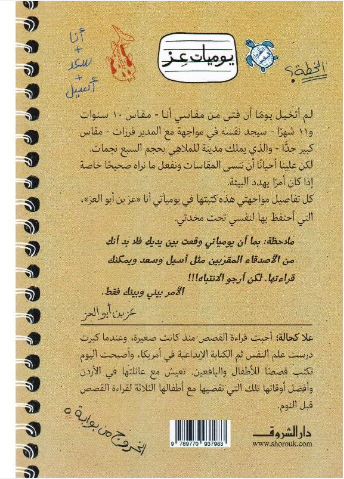 أنا
+
سعد
+
أسيل
يوميات عِز
الخطة؟
لم أتخيل يومًا أن فتى من مقاسي أنا - مقاس ١٠ سنوات
و١١ شهرًا - سيجد نفسه في مواجهة مع المدير فرزات - مقاس
كبير جدًّا - والذي يملك مدينة للملاهي بحجم السبع نجمات.
لكن علينا أحيانًا أن ننسى المقاسات ونفعل ما نراه صحيحًا خاصة
إذا كان أمرًا يهدد البيئة.
كل تفاصيل مواجهتي هذه كتبتها في يومياتي أنا «عز بن أبو العز»،
التي أحتفظ بها لنفسي تحت مخدتي.
ملاحظة: بما أن يومياتي وقعت بين يديك فلا بد أنك
من الأصدقاء المقربين مثل أسيل وسعد ويمكنك
قراءتها. لكن أرجو الانتباه!!!
الأمر بيني وبينك فقط.
عز بن أبو العز
علا كحالة: أحبت قراءة القصص منذ كانت صغيرة، وعندما كبرت
درست علم النفس ثم الكتابة الإبداعية في أمريكا، وأصبحت اليوم
تكتب قصصًا للأطفال واليافعين. تعيش مع عائلتها في الأردن
وأفضل أوقاتها تلك التي تقضيها مع أطفالها الثلاثة لقراءة القصص
قبل النوم.
الخروج من بوابة ٥
9 789770 937983
دار الشروق
www.shorouk.com